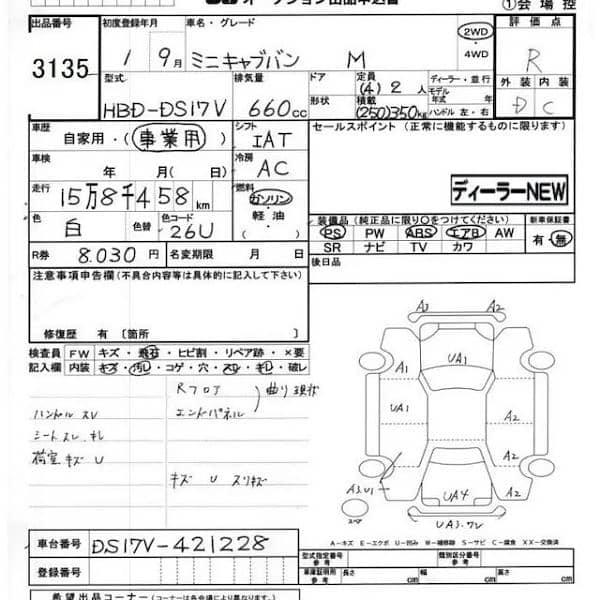 オークション出品申込書
①会場控
出品番号 初度登録年月 車名・グレード 評価点
3135 1 9月 ミニキャブバン M 2WD・4WD R
型式 排気量 ドア形状 定員 積載 ディーラー・並行 モデル年式 年 ハンドル 左・右 外装 内装
HBD-DS17V 660cc (4)2人 (250)350kg D C
車歴 自家用・(事業用) シフト IAT セールスポイント (正常に機能するものに限ります)
車検 年 月(日) 冷房 AC
走行 15万8千458km 燃料 ガソリン・軽油 ディーラーNEW
色 白 色替 色コード 26U 装備品(純正品に限り○をつけてください) 新車保証書
PS PW ABS エアB AW 有・無
SR ナビ TV カワ
R券 8.030円 名変期限 月 日 後日品
注意事項申告欄(不具合内容等は具体的に記入して下さい)
修復歴 有〔箇所 〕
検査員 FW キズ・飛石・ヒビ割・リペア跡・×要
記入欄 内装 キズ・汚レ・コゲ・穴・スレ・キレ・破レ
Rフロア
エンドパネル 曲り現状
ハンドル スレ
シートスレ キレ
荷室キズ U
キズ U スリキズ
A3 A2
A1 UA1 A2
UA1 A2
A3.U1 UA4 A2
スペア UA3.
A-キズ E-エクボ U-凹み W-補修跡 S-サビ C-腐食 XX-交換済
車台番号 DS17V-421228
登録番号
型式指定番号 参考 類別区分番号 参考
車庫証明用 参考 長さ cm 幅 cm 高さ cm
希望出品コーナー(コーナーは各会場により異なります。)